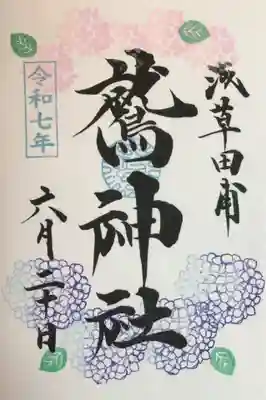 浅草田甫
鷲神社
令和七年
六月二十日